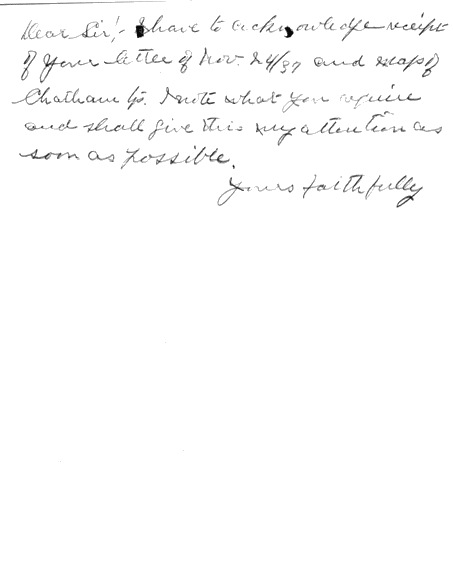 Dear Sir:- I have to acknowledge receipt
of your letter of Nov. 24/37 and map of
Chatham Tp. I note what you require
and shall give this my attention as
soon as possible.
Yours faithfully